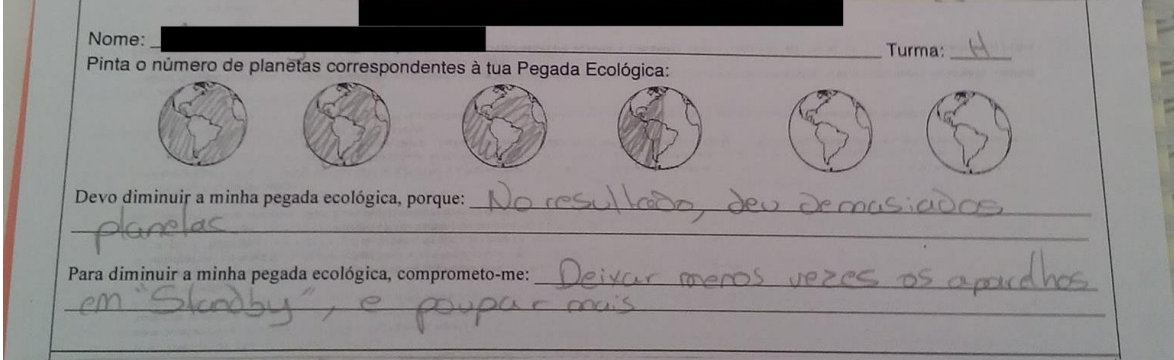 Nome: Turma: H
Pinta o número de planetas correspondentes à tua Pegada Ecológica:
Devo diminuir a minha pegada ecológica, porque: No resultado, deu demasiados
planetas
Para diminuir a minha pegada ecológica, comprometo-me: Deixar menos vezes os aparelhos
em "Standby", e poupar mais